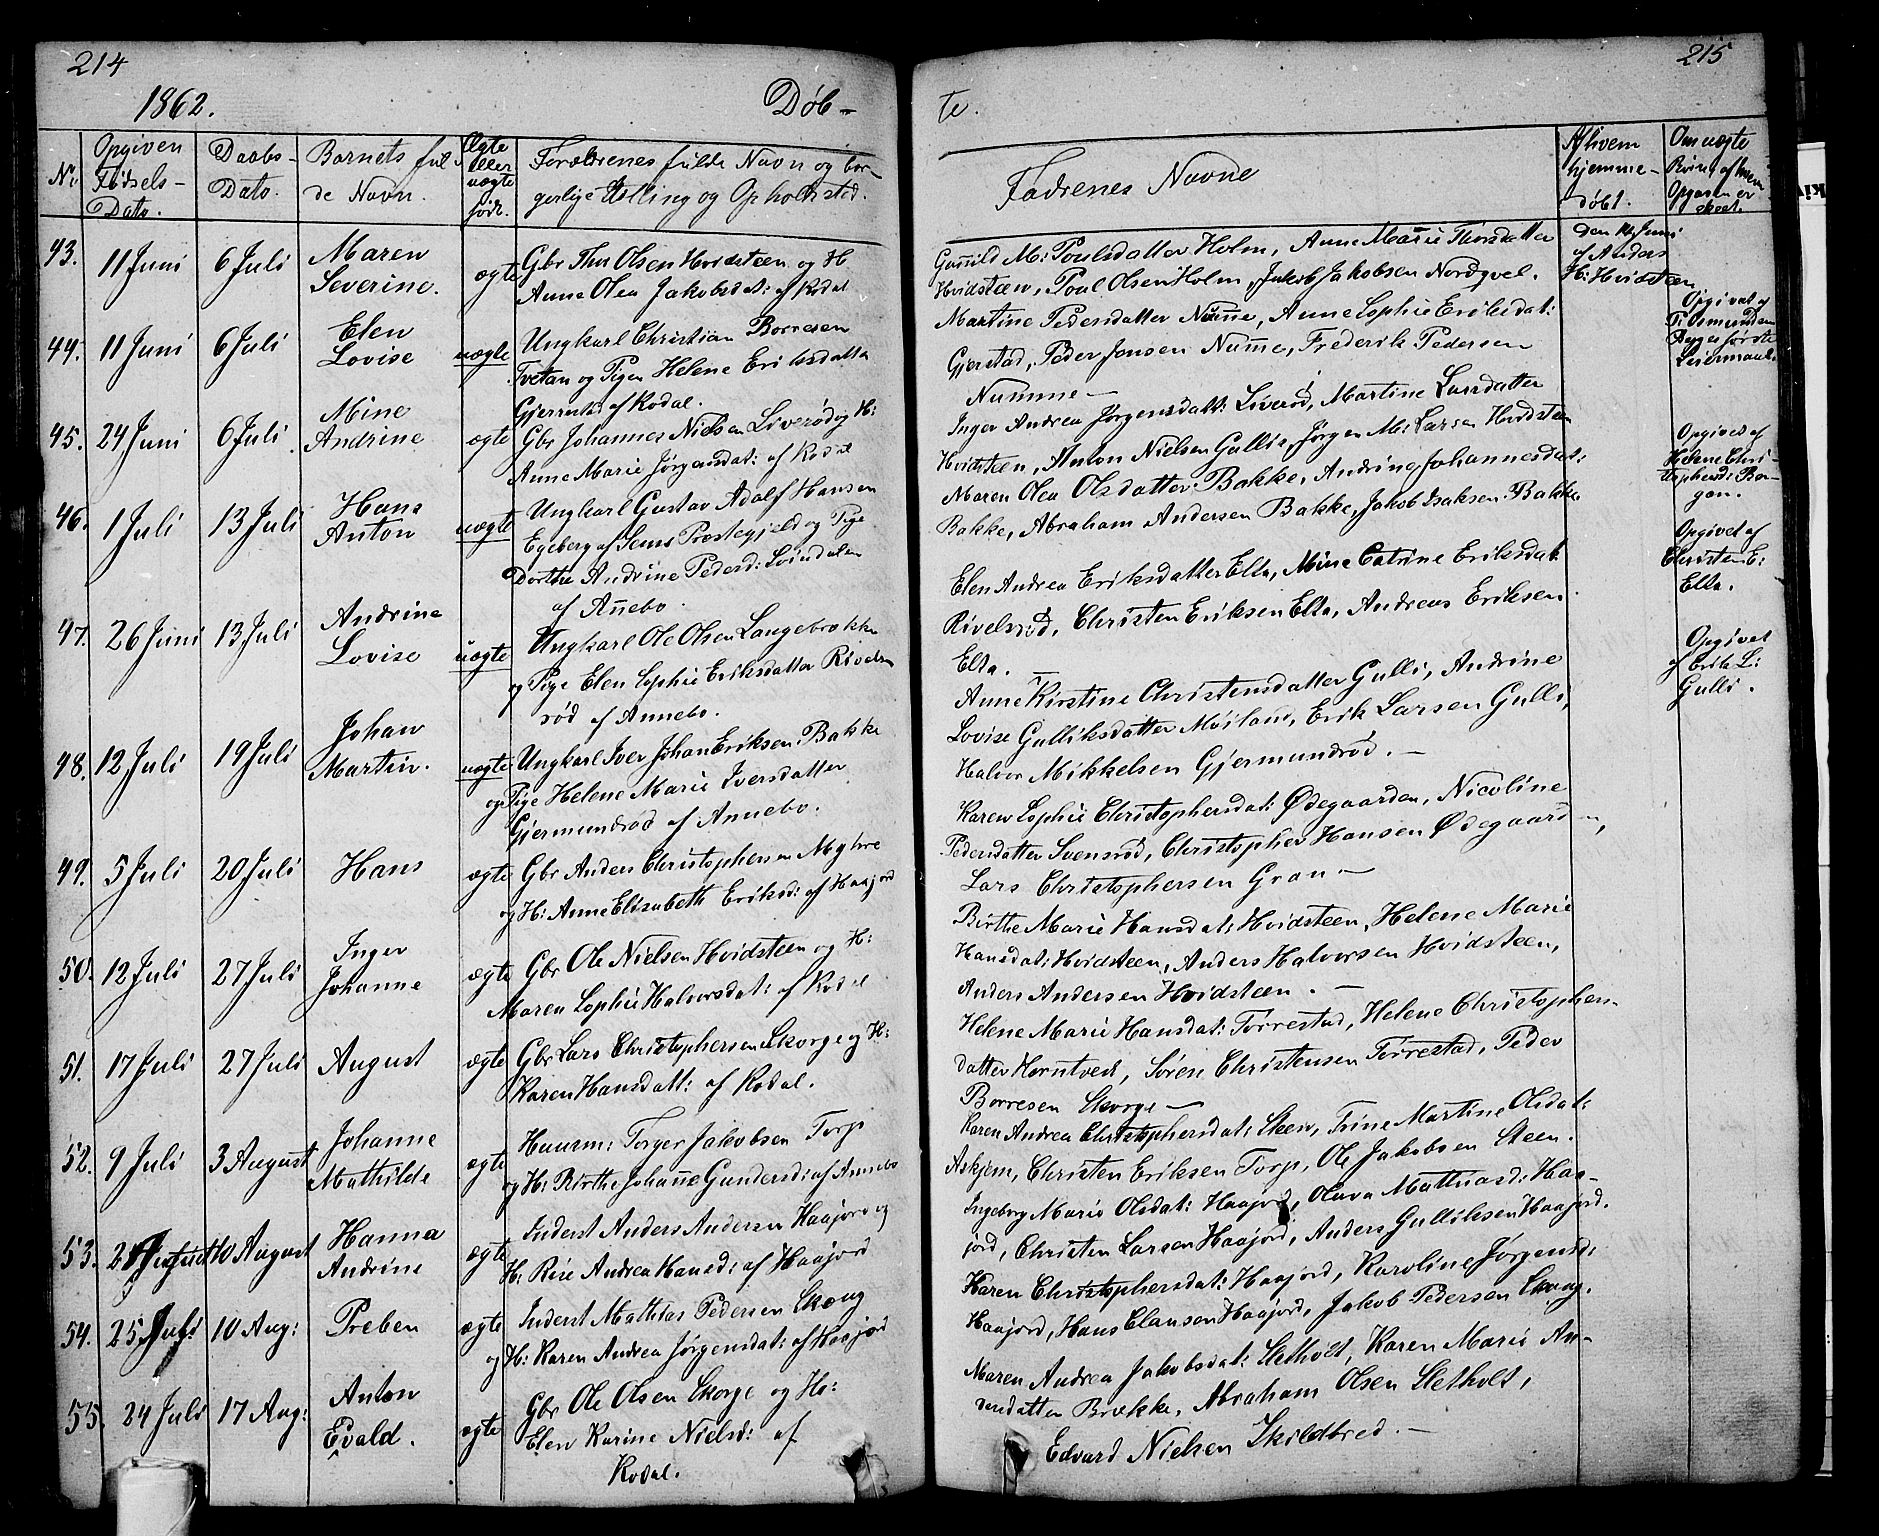 214
1862.
Døb-
No
Opgiven
Fødsels-
Dato.
Daabs-
Dato.
Barnets ful
de Navn.
Ægte
eller
uægte
født.
Forældrenes fulde Navn og bor-
gerlige Stilling og Opholdsted.
43.
11 Juni
6 Juli
Maren
Severine.
ægte
Gbr Thor Olsen Hvidsteen og H
Anne Olea Jakobsdat: af Kodal
44.
11 Juni
6 Juli
Elen
Lovise
uægte
Ungkarl Christian Borresen
Tvetan og Pigen Helene Eriksdatter
af Kodal.
45.
24 Juni
6 Juli
Mine
Andrine
ægte
Gbr Johannes Nielsen Liverød og H:
Anne Marie Jørgensdat: af Kodal
46.
1 Juli
13 Juli
Hans
Anton
uægte
Ungkarl Gustav Adolf Hansen
Egeberg af Sems Præstegjeld og Pige
Dorthe Andrine Pedersd:
af Annebo.
47.
26 Juni
13 Juli
Andrine
Lovise
uægte
Ungkarl Ole Olsen Langebrække
og Pige Elen Sophie Eriksdatter Rivels
rød af Annebo.
48.
12 Juli
19 Juli
Johan
Martin.
uægte
Ungkarl Iver Johan Eriksen Bakke
og Pige Helene Marie Iversdatter
Gjermundrød af Annebo.
49.
5 Juli
20 Juli
Hans
ægte
Gbr Anders Christophersen Myhre
og H: Anne Elisabeth Eriksd: af Haajord
50.
12 Juli
27 Juli
Inger
Johanne
ægte
Gbr Ole Nielsen Hvidsteen og H:
Maren Sophie Halvorsdat: af Kodal
51.
17 Juli
27 Juli
August
ægte
Gbr Lars Christophersen Skorge og H:
Karen Hansdatt: af Kodal.
52.
9 Juli
3 August
Johanne
Mathilde
ægte
Huusm: Torger Jakobsen Torp
og H: Birthe Johanne Gundersd: af Annebo
53.
2 August
10 August
Hanna
Andrine
ægte
Inderst Anders Andersen Haajord og
H: Andrea Hansd: af Haajord
54.
25 Juli
10 Aug:
Preben
ægte
Inderst Mathias Pedersen Skoug
og H: Karen Andrea Jørgensdat: af Haajord
55.
24 Juli
17 Aug:
Anton
Evald.
ægte
Gbr Ole Olsen Skorge og H:
Elen Karine Nielsd: af
Kodal.
215
te.
Fadrenes Navne
Af hvem
hjemme-
døbt.
Om uægte
Børn, af hvem
Opgaven er
skeet.
Gunild M: Poulsdatter Holm, Anne Marie Thorsdatter
Hvidsteen, Poul Olsen Holm, Jakob Jakobsen Nordqvel.
den 14 Juni
af Anders
H: Hvidsteen
Martine Pedersdatter Numme, Anne Sophie Eriksdat:
Gjerstad, Peder Jonsen Numme, Frederik Pedersen
Numme -
Opgivet af
første
Leiermaal
Inger Andrea Jørgensdatt: Liverød, Martine Larsdatter
Hvidsteen, Anton Nielsen Gulli, Jørgen M: Larsen Hvidsteen
Maren Olea Olsdatter Bakke, Andrine Johannesdat:
Bakke, Abraham Andersen Bakke, Jakob Isaksen Bakke
Opgivet af
Helene Chri-
stophersd: Bor-
gen.
Elen Andrea Eriksdatter Elta, Mine Catrine Eriksdat:
Rivelsrød, Christen Eriksen Elta, Andreas Eriksen
Elta. -
Opgivet af
Christen E:
Elta.
Anne Kirstine Christensdatter Gulli, Andrine
Lovise Gulliksdatter Møiland, Erik Larsen Gulli,
Halvor Mikkelsen Gjermundrød. -
Opgivet
af Erik L:
Gulli.
Karen Sophie Christophersdat: Ødegaarden, Nicoline
Pedersdatter Svensrød, Christopher Hansen Ødegaarden,
Lars Christophersen Gran -
Birthe Marie Hansdat: Hvidsteen, Helene Marie
Hansdat: Hvidsteen, Anders Halvorsen Hvidsteen,
Anders Andersen Hvidsteen. -
Helene Marie Hansdat: Torrestad, Helene Christophers-
datter Hørntvedt, Søren Christensen Torrestad, Peder
Borresen Skorge -
Karen Andrea Christophersdat: Steen, Trine Martine Olsdat:
Askjem, Christen Eriksen Torp, Ole Jakobsen Steen.
Ingeborg Marie Olsdat: Haajord, Olava Mathiasd: Haa-
jord, Christen Larsen Haajord, Anders Gulliksen Haajord.
Karen Christophersdat: Haajord, Karoline Jørgensd:
Haajord, Hans Clausen Haajord, Jakob Pedersen Skoug.
Maren Andrea Jakobsdat: Sletholt, Karen Marie An-
dersdatter Brække, Abraham Olsen Sletholt,
Edvard Nielsen Skildbred. -